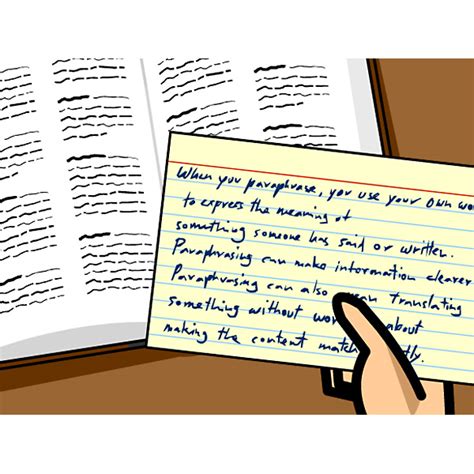 When you paraphrase, you use your own wo
to express the meaning of
something someone has said or written.
Paraphrasing can make information clearer
Paraphrasing can also mean translating
something without wor about
making the content match tly.